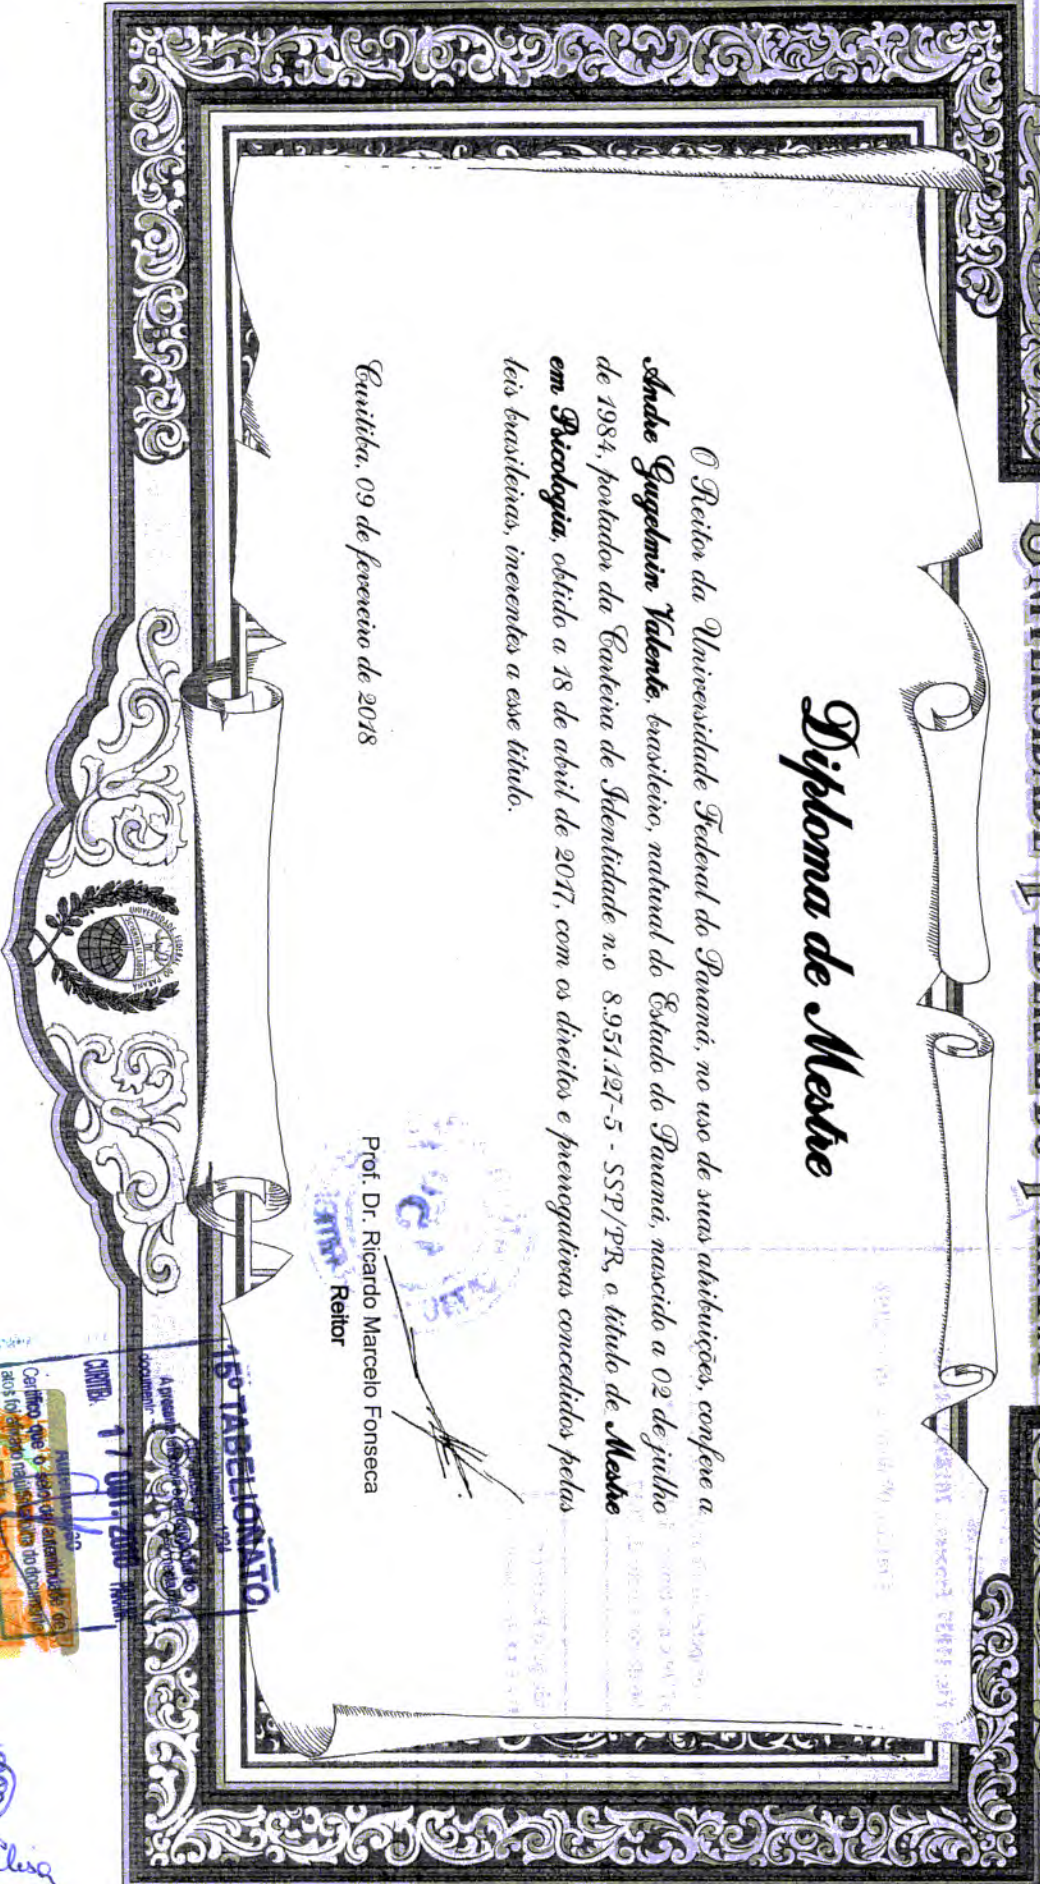 Diploma de Mestre
O Reitor da Universidade Federal do Paraná, no uso de suas atribuições, confere a
Andre Gugelmin Valente, brasileiro, natural do Estado do Paraná, nascido a 02 de julho
de 1984, portador da Carteira de Identidade n.o 8.951.127-5 - SSP/PR, o título de Mestre
em Psicologia, obtido a 18 de abril de 2017, com os direitos e prerrogativas concedidos pelas
leis brasileiras, inerentes a esse título.
Curitiba, 09 de fevereiro de 2018
Prof. Dr. Ricardo Marcelo Fonseca
Reitor
UNIVERSIDADE FEDERAL DO PARANÁ
15º TABELIONATO
CURITIBA
Certifico que o selo de autenticidade de